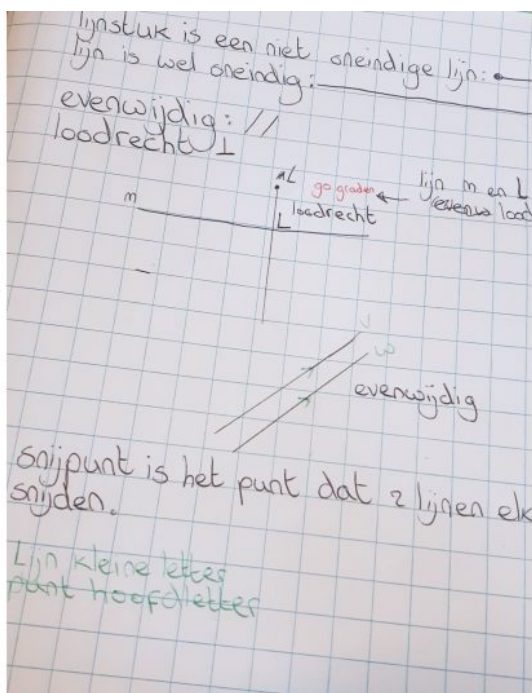 lijnstuk is een niet oneindige lijn:
lijn is wel oneindig:
evenwijdig: //
loodrecht ⊥
L
90 graden ← lijn m en L
m
loodrecht
evenw lood
v
w
evenwijdig
snijpunt is het punt dat 2 lijnen elk
snijden.
Lijn kleine letter
punt hoofdletter